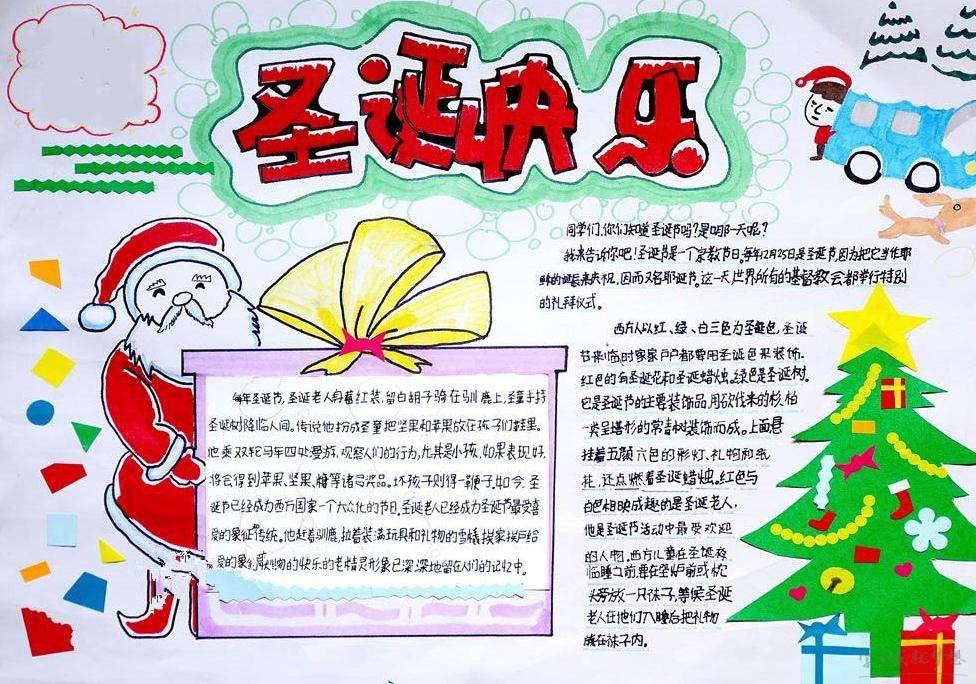 圣诞快乐
同学们,你们知道圣诞节吗?是哪一天呢?
我来告诉你吧!圣诞是一个宗教节日,每年12月25日是圣诞节,因为把它当作耶
稣的诞辰来庆祝,因而又名耶诞节。这一天世界所有的基督教会都举行特别
的礼拜仪式。
西方人以红、绿、白三色为圣诞色,圣诞
节来临时家家户户都要用圣诞色来装饰。
红色的有圣诞花和圣诞蜡烛。绿色是圣诞树。
它是圣诞节的主要装饰品,用砍伐来的杉、柏
一类呈塔形的常青树装饰而成。上面悬
挂着五颜六色的彩灯、礼物和纸
花,还点燃着圣诞蜡烛。红色与
白色相映成趣的是圣诞老人,
他是圣诞节活动中最受欢迎
的人物。西方儿童在圣诞夜
临睡之前,要在壁炉前或枕
头旁放一只袜子,等候圣诞
老人在他们入睡后把礼物
放在袜子内。
每年圣诞节,圣诞老人身着红装,留白胡子骑在驯鹿上,圣童手持
圣诞树降临人间。传说他扮成圣童把坚果和苹果放在孩子们鞋里。
他乘双轮马车四处漫游,观察人们的行为,尤其是小孩,如果表现好,
将会得到苹果、坚果、糖等诸多奖品。坏孩子则得一鞭子。如今,圣
诞节已经成为西方国家一个大众化的节日,圣诞老人已经成为圣诞节最受喜
爱的象征传统。他赶着驯鹿,拉着装满玩具和礼物的雪橇挨家挨户给
的快乐的老精灵形象已深深地留在人们的记忆中。